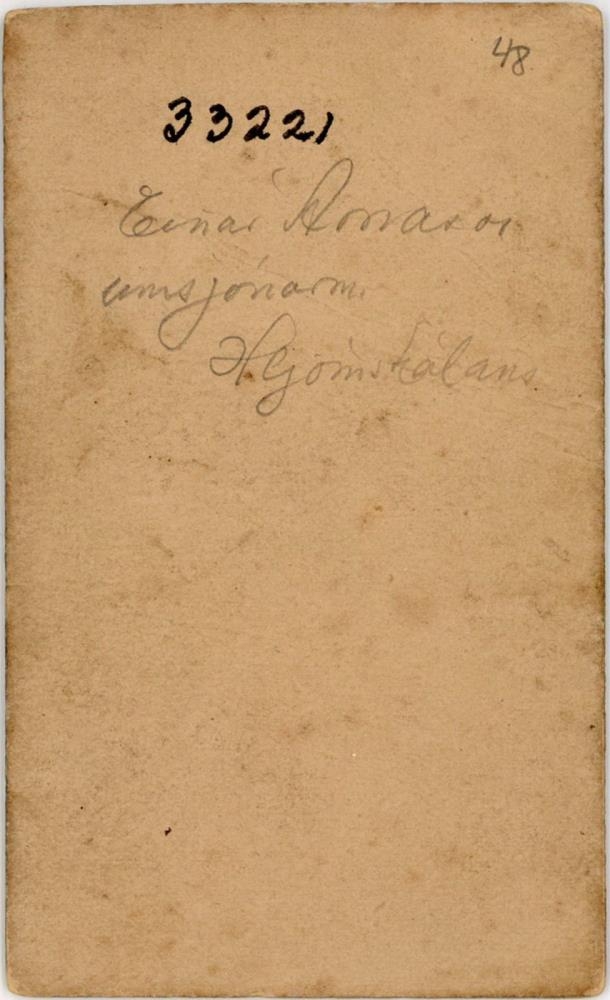 48
33221
Einar
umsjónarm.
Hljómskálans